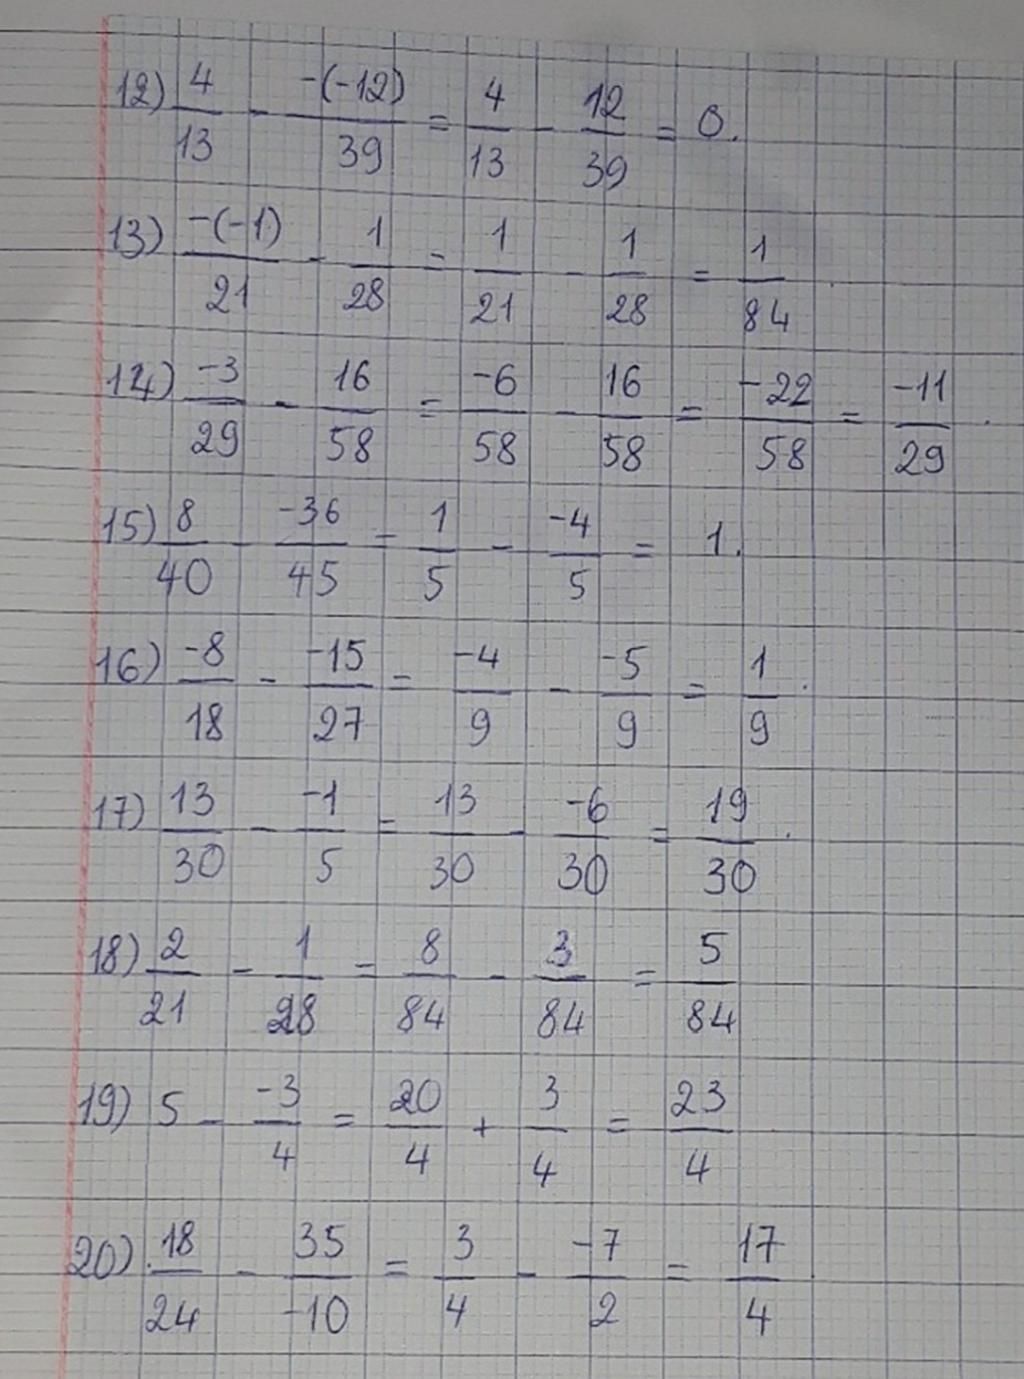 12) 4/13 - -(-12)/39 = 4/13 - 12/39 = 0.
13) -(-1)/21 - 1/28 = 1/21 - 1/28 = 1/84
14) -3/29 - 16/58 = -6/58 - 16/58 = -22/58 = -11/29.
15) 8/40 - -36/45 = 1/5 - -4/5 = 1.
16) -8/18 - -15/27 = -4/9 - -5/9 = 1/9.
17) 13/30 - -1/5 = 13/30 - -6/30 = 19/30.
18) 2/21 - 1/28 = 8/84 - 3/84 = 5/84
19) 5 - -3/4 = 20/4 + 3/4 = 23/4
20) 18/24 - 35/-10 = 3/4 - -7/2 = 17/4